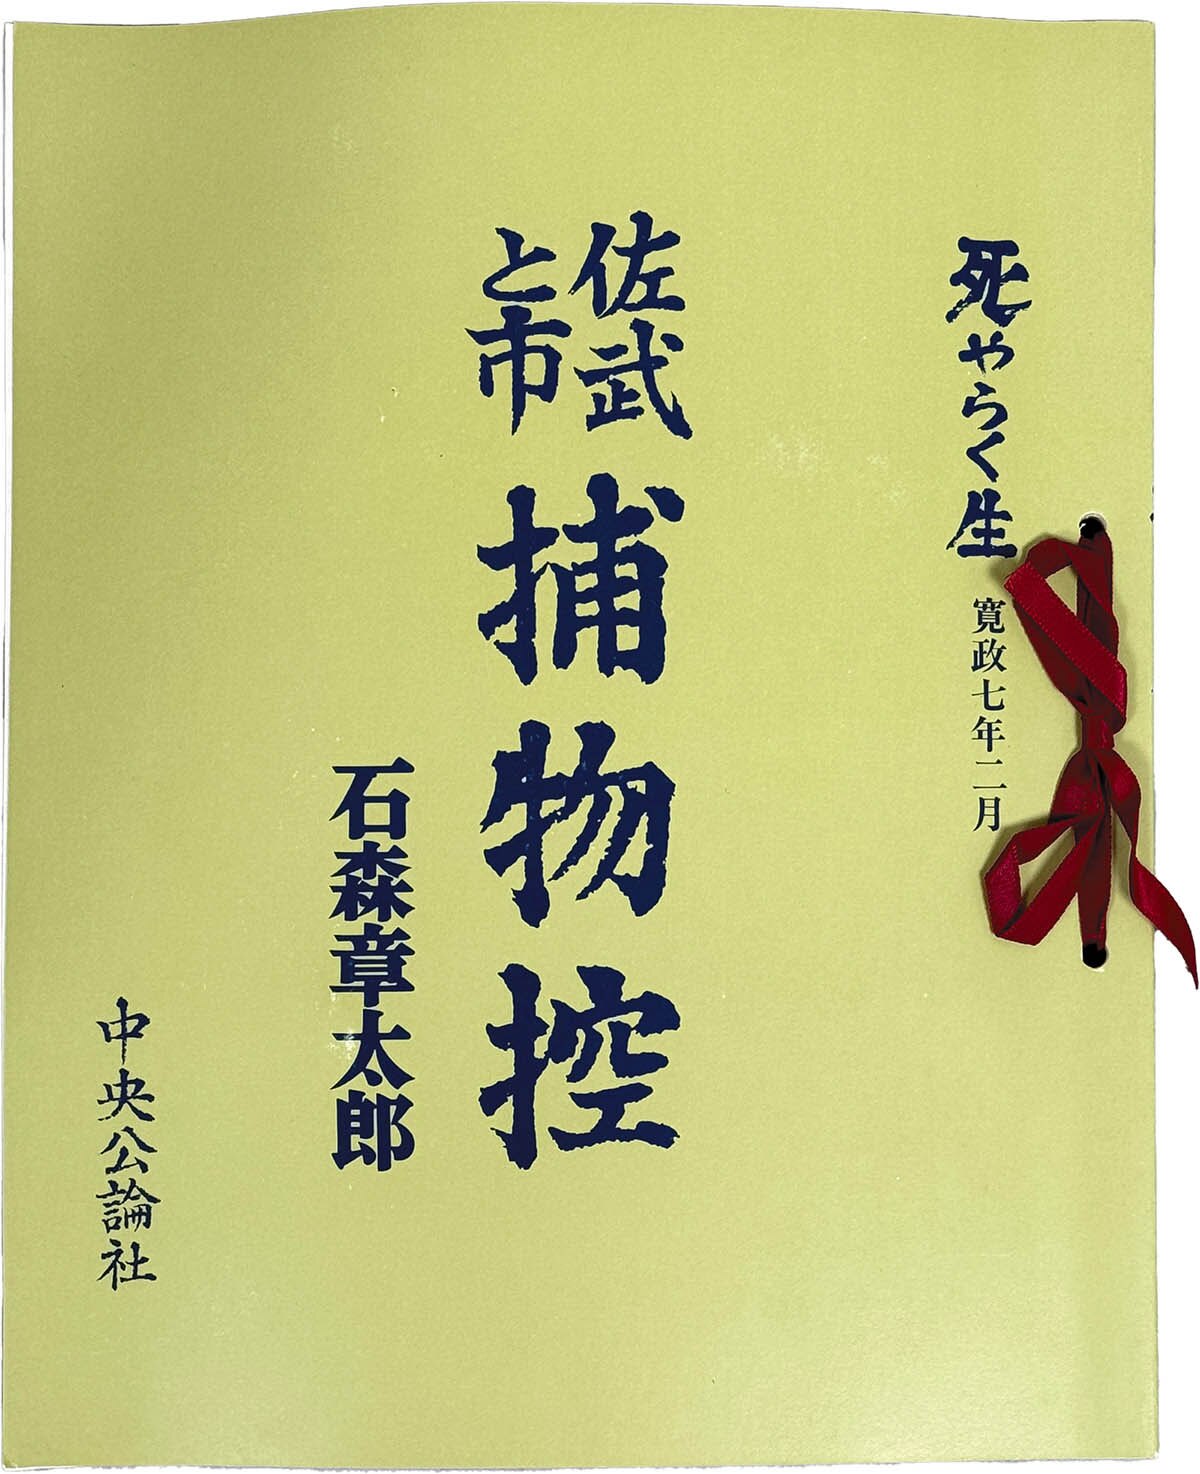 死やらく生 寛政七年二月
佐武
と市
捕物控
石森章太郎
中央公論社